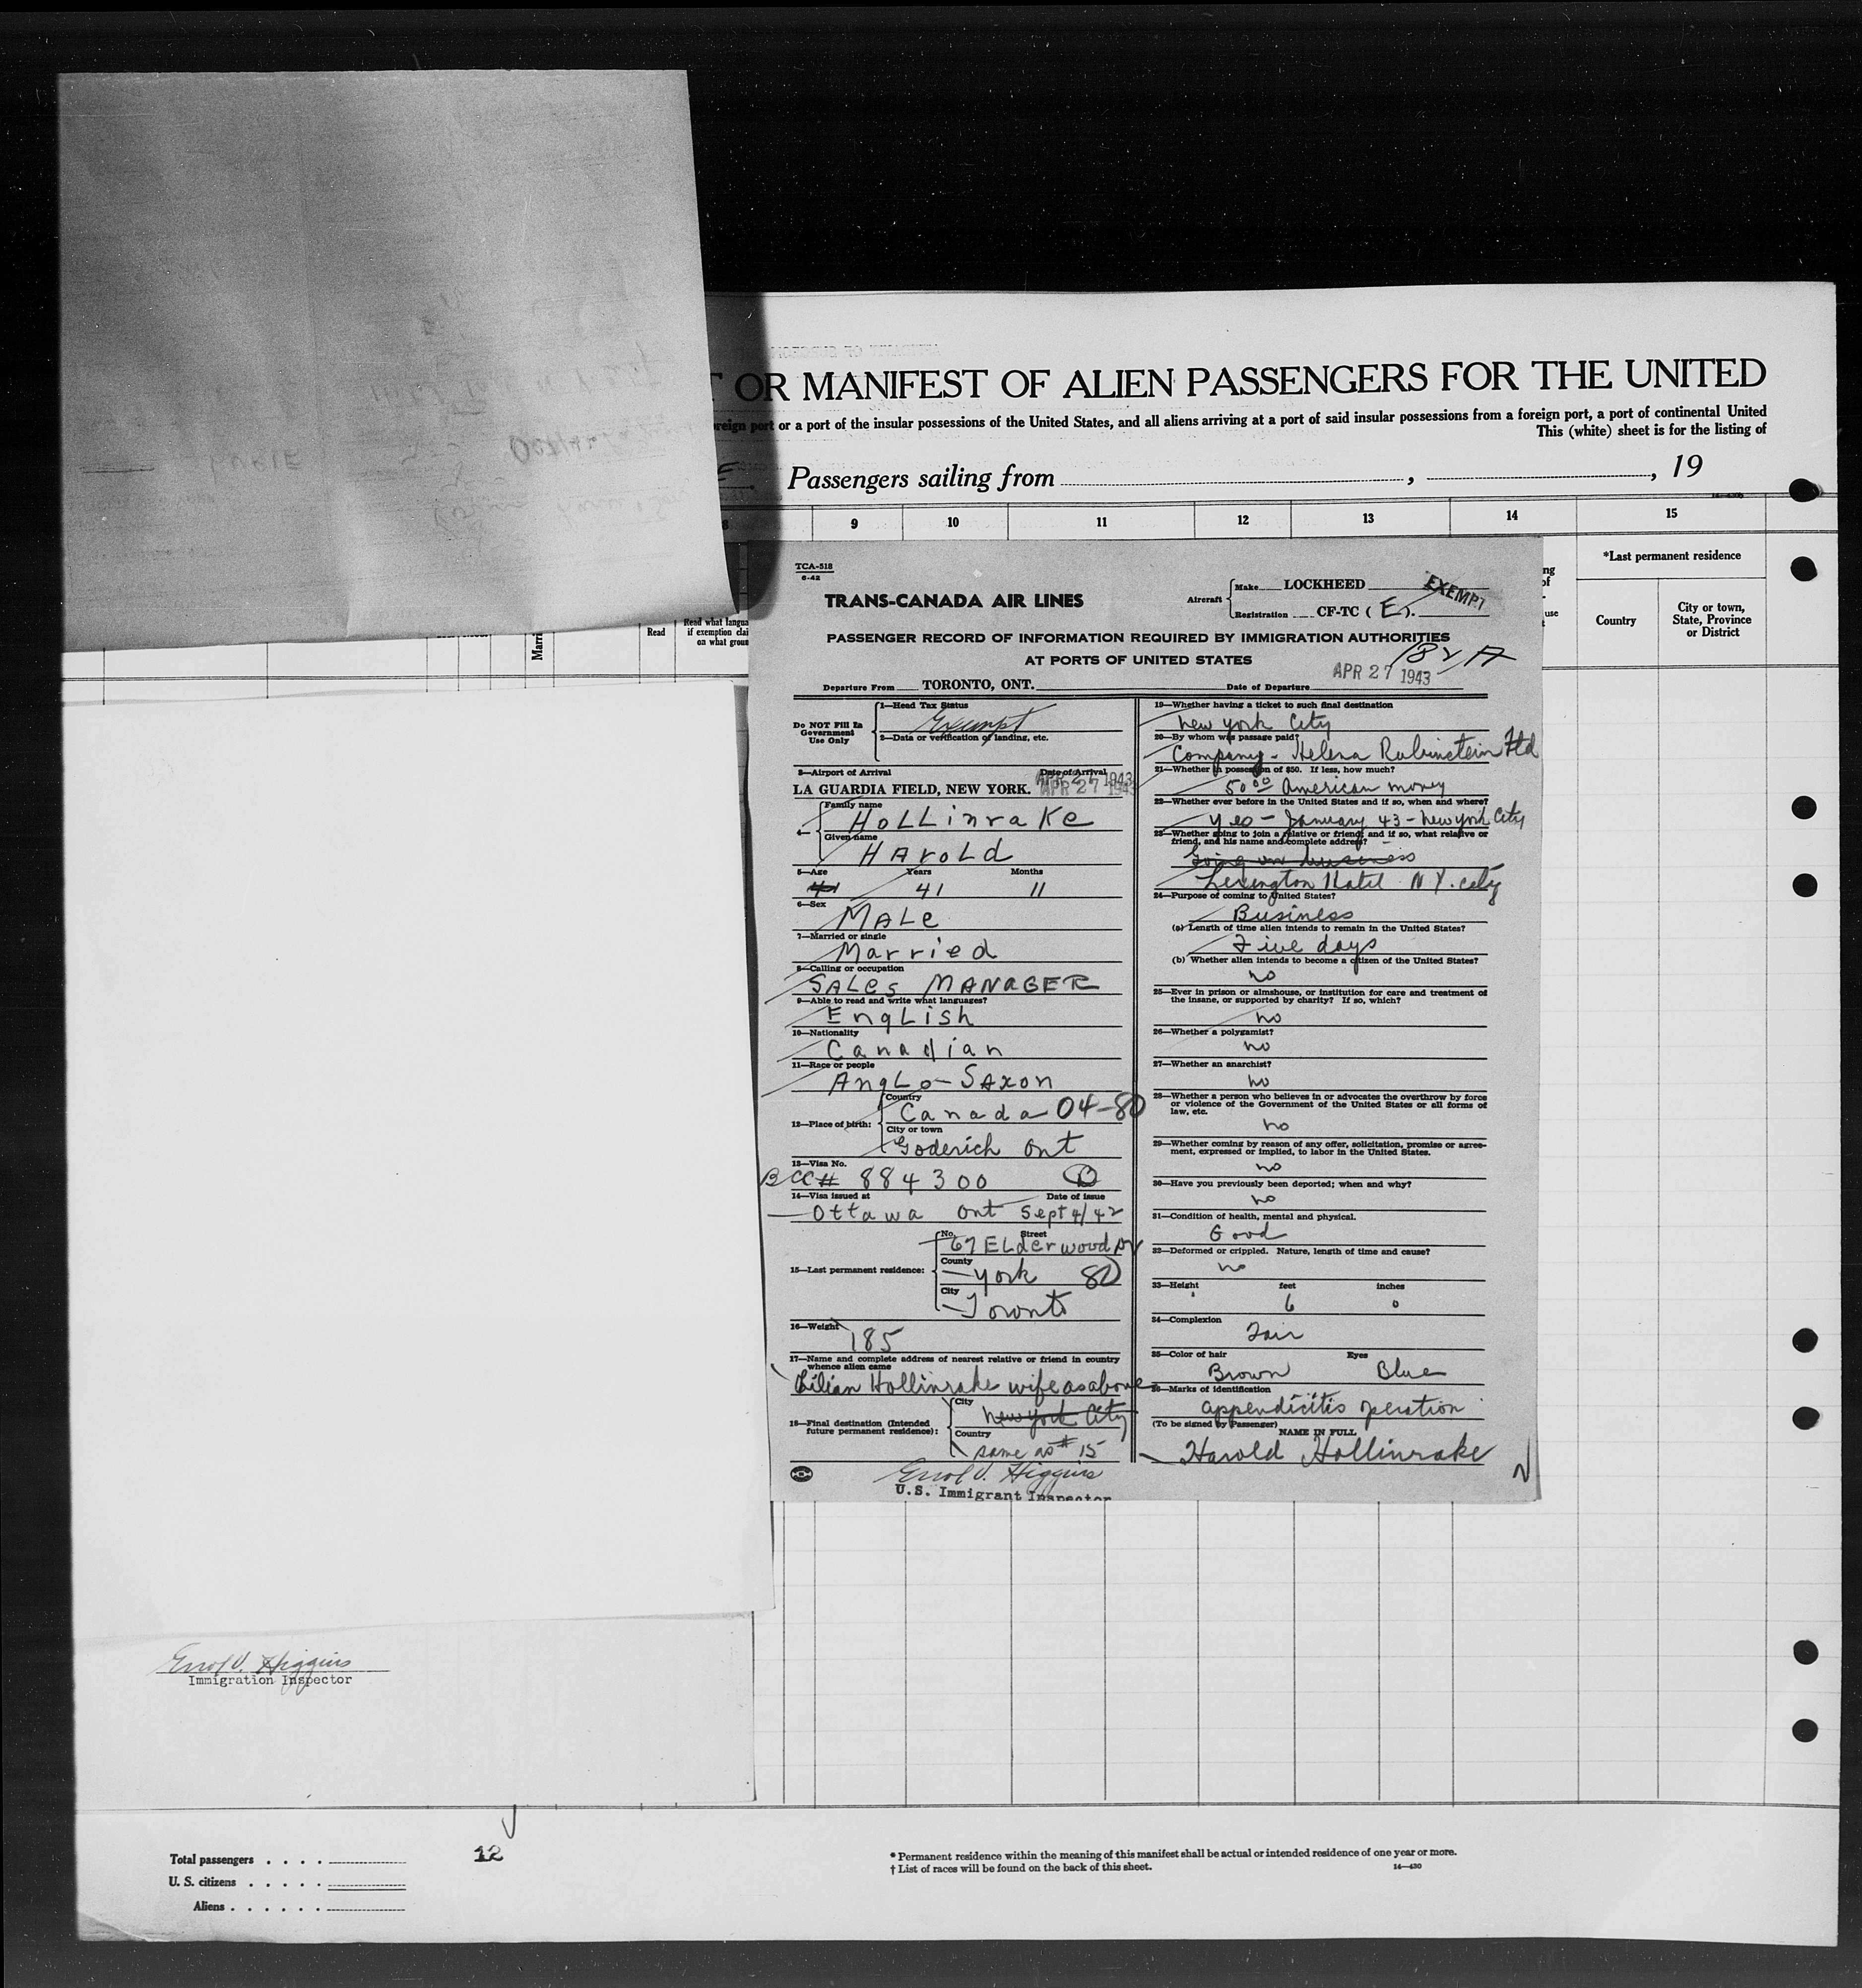 T OR MANIFEST OF ALIEN PASSENGERS FOR THE UNITED
reign port or a port of the insular possessions of the United States, and all aliens arriving at a port of said insular possessions from a foreign port, a port of continental United
This (white) sheet is for the listing of
Passengers sailing from , , 19
9 10 11 12 13 14 15
*Last permanent residence
Country
City or town, State, Province or District
Read
Read what langua
if exemption clai
on what groun
TCA-518
6-42
TRANS-CANADA AIR LINES
Aircraft
Make LOCKHEED
Registration CF-TC (E).
EXEMPT
PASSENGER RECORD OF INFORMATION REQUIRED BY IMMIGRATION AUTHORITIES
AT PORTS OF UNITED STATES
APR 27 1943
Departure From TORONTO, ONT. Date of Departure
Do NOT Fill In
Government
Use Only
1—Head Tax Status
Exempt
2—Data or verification of landing, etc.
3—Airport of Arrival Date of Arrival
LA GUARDIA FIELD, NEW YORK. APR 27 1943
APR 27 1943
4—
Family name
HoLLinraKe
Given name
HAroLd
5—Age Years Months
41 41 11
6—Sex
MALe
7—Married or single
Married
8—Calling or occupation
SALes MANAGER
9—Able to read and write what languages?
EngLish
10—Nationality
Canadian
11—Race or people
AngLo-SAxon
12—Place of birth:
Country
Canada 04-80
City or town
Goderich Ont
13—Visa No.
BCC# 884300
14—Visa issued at Date of issue
Ottawa Ont Sept 4/42
15—Last permanent residence:
No. Street
67 ELderwood Dr
County
York 80
City
Toronto
16—Weight
185
17—Name and complete address of nearest relative or friend in country
whence alien came
Lilian Hollinrake wife as above
18—Final destination (Intended
future permanent residence):
City
New York City
Country
same as # 15
Errol V. Higgins
U.S. Immigrant Inspector
19—Whether having a ticket to such final destination
New York City
20—By whom was passage paid?
Company - Helena Rubinstein Ltd
21—Whether in possession of $50. If less, how much?
50 00 American money
22—Whether ever before in the United States and if so, when and where?
yes - January 43 - New York City
23—Whether going to join a relative or friend, and if so, what relative or
friend, and his name and complete address?
Going on business
Lexington Hotel N.Y. City
24—Purpose of coming to United States?
Business
(a) Length of time alien intends to remain in the United States?
Five days
(b) Whether alien intends to become a citizen of the United States?
no
25—Ever in prison or almshouse, or institution for care and treatment of
the insane, or supported by charity? If so, which?
no
26—Whether a polygamist?
no
27—Whether an anarchist?
no
28—Whether a person who believes in or advocates the overthrow by force
or violence of the Government of the United States or all forms of
law, etc.
no
29—Whether coming by reason of any offer, solicitation, promise or agree-
ment, expressed or implied, to labor in the United States.
no
30—Have you previously been deported; when and why?
no
31—Condition of health, mental and physical.
Good
32—Deformed or crippled. Nature, length of time and cause?
no
33—Height feet inches
6 0
34—Complexion
Fair
35—Color of hair Eyes
Brown Blue
36—Marks of identification
appendicitis operation
(To be signed by Passenger)
NAME IN FULL
Harold Hollinrake
Errol V. Higgins
Immigration Inspector
Total passengers 12
U. S. citizens
Aliens
* Permanent residence within the meaning of this manifest shall be actual or intended residence of one year or more.
† List of races will be found on the back of this sheet.
14—430